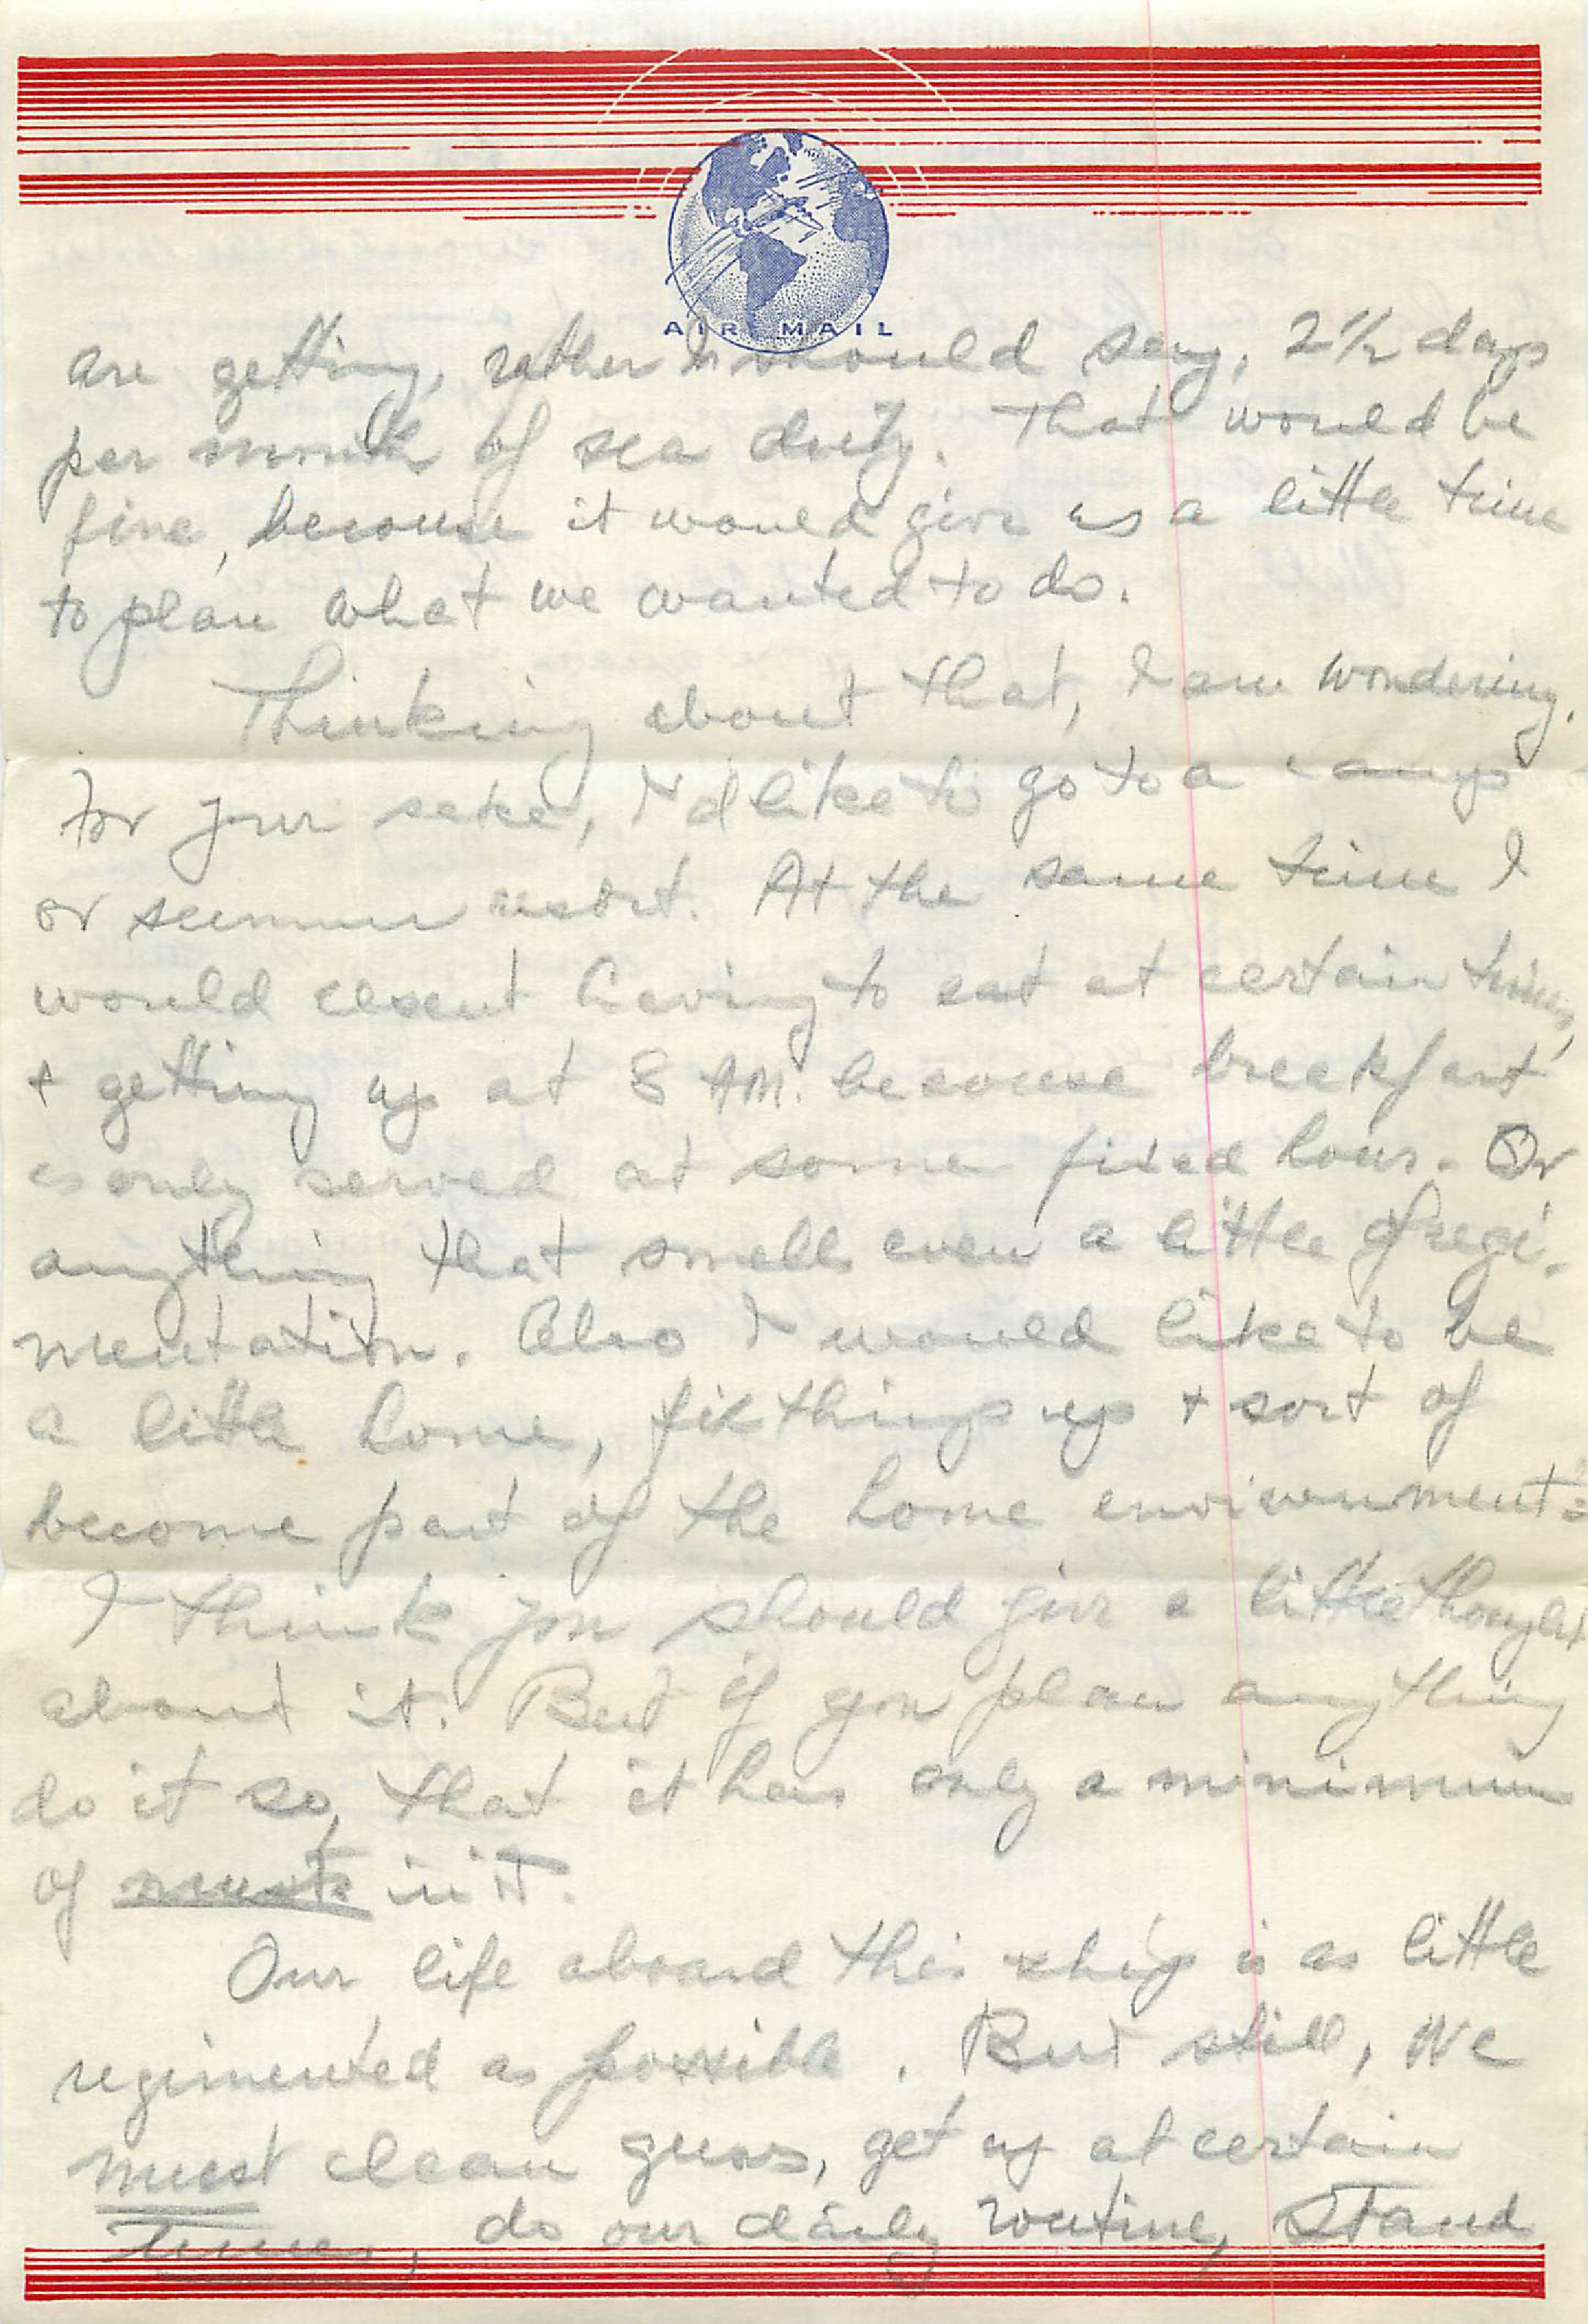 AIR MAIL
are getting, rather I should say, 2 1/2 days
per month of sea duty. That would be
fine, because it would give us a little time
to plan what we wanted to do.
Thinking about that, I am wondering.
For your sake, I'd like to go to a camp
or summer resort. At the same time I
would resent having to eat at certain times,
+ getting up at 8 AM. because breakfast
is only served at some fixed hour. Or
anything that smell even a little of regi-
mentation. Also I would like to be
a little home, fix things up + sort of
become part of the home environment.
I think you should give a little thought
about it. But if you plan anything
do it so, that it has only a minimum
of musts in it.
Our life aboard this ship is as little
regimented as possible. But still, we
must clean guns, get up at certain
times, do our daily routine, stand